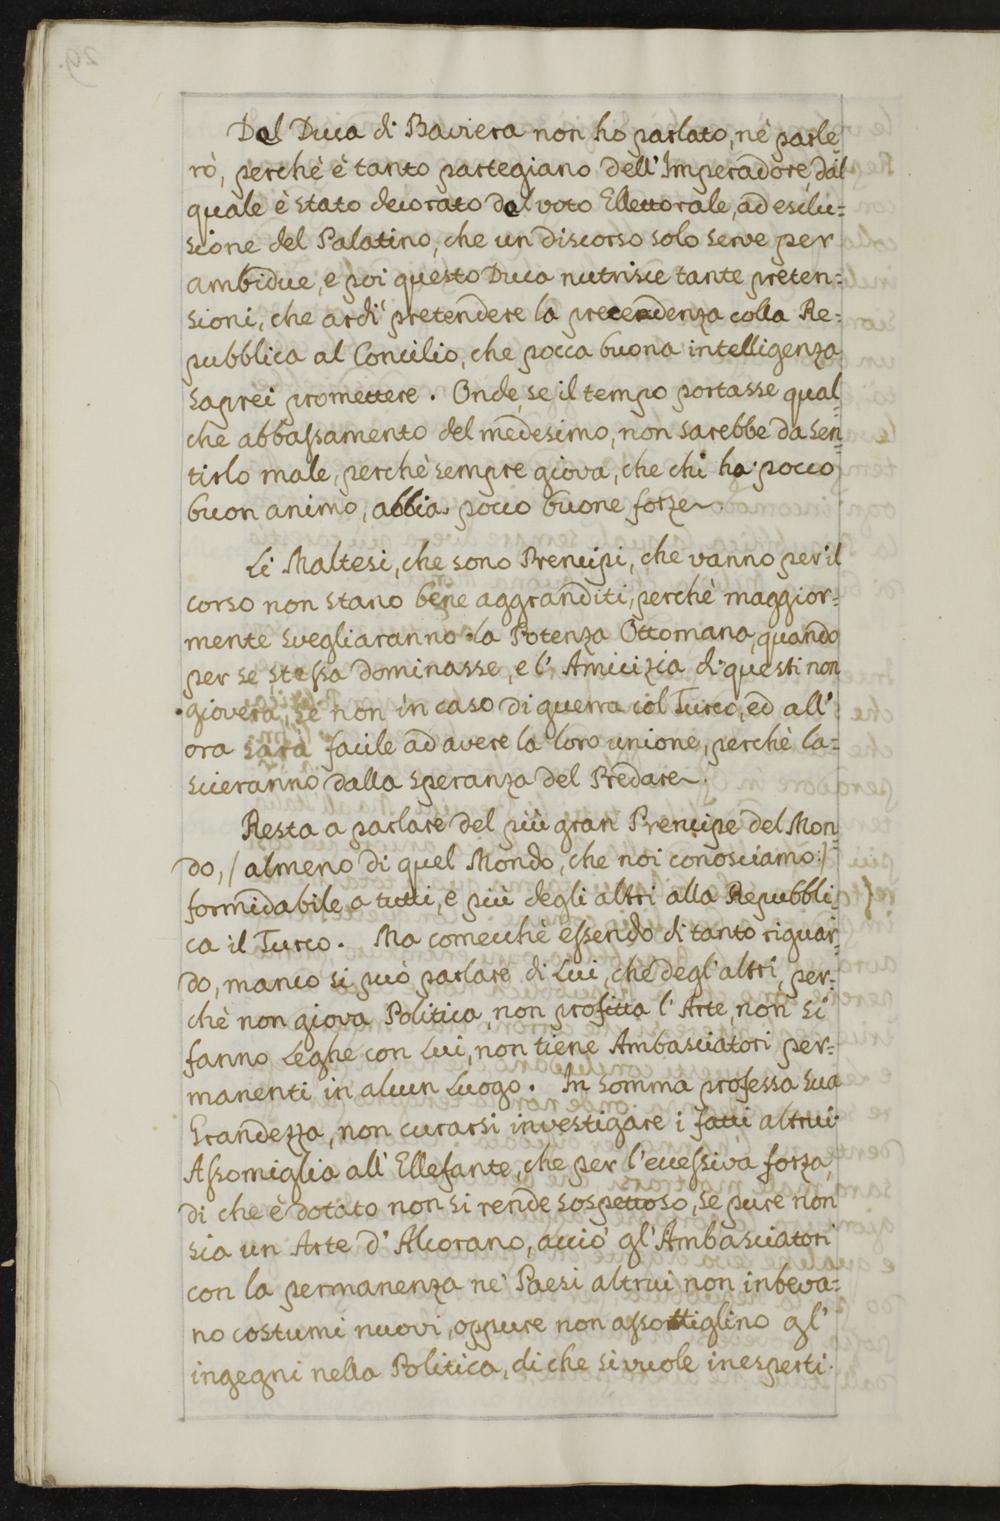 Dal Duca di Baviera non ho parlato, nè parle
rò, perchè è tanto partegiano dell'Imperadore, dal
quale è stato decorato del voto Ellettorale, ad esclu=
sione del Palatino, che un discorso solo serve per
ambidue, e poi questo Duca nutrisce tante preten=
sioni, che ardì pretendere la precedenza colla Re=
pubblica al Concilio, che pocca buona intelligenza
saprei promettere. Onde, se il tempo portasse qual=
che abbassamento del medesimo, non sarebbe da sen=
tirlo male, perchè sempre giova, che chi ha pocco
buon animo, abbia pocco buone forze.
Li Maltesi, che sono Prencipi, che vanno per il
corso non stano bene aggranditi, perchè maggior=
mente svegliaranno la Potenza Ottomana, quando
per se stessa dominasse, e l'Amicizia di questi non
gioverà, se non in caso di guerra col Turco, ed all'
ora sarà facile ad avere la loro unione, perchè la=
scieranno dalla speranza del Predare.
Resta a parlare del più gran Prencipe del Mon=
do, /almeno di quel Mondo, che noi conosciamo:/
formidabile a tutti, e più degli altri alla Repubbli=
ca il Turco. Ma comecchè essendo di tanto riguar=
do, manco si può parlare di Lui, che degl'altri, per=
chè non giova Politica, non profitta l'Arte, non si
fanno Leghe con Lui, non tiene Ambasciatori per=
manenti in alcun Luogo. In somma professa sua
Grandezza, non curarsi investigare i fatti altrui.
Assomiglia all'Ellefante, che per l'eccessiva forza,
di che è dotato non si rende sospettoso, se pure non
sia un Arte d'Alcorano, acciò gl'Ambasciatori
con la permanenza ne' Paesi altrui non inbeva=
no costumi nuovi, oppure non assottiglino gl'
ingegni nella Politica, di che si vuole inesperti.